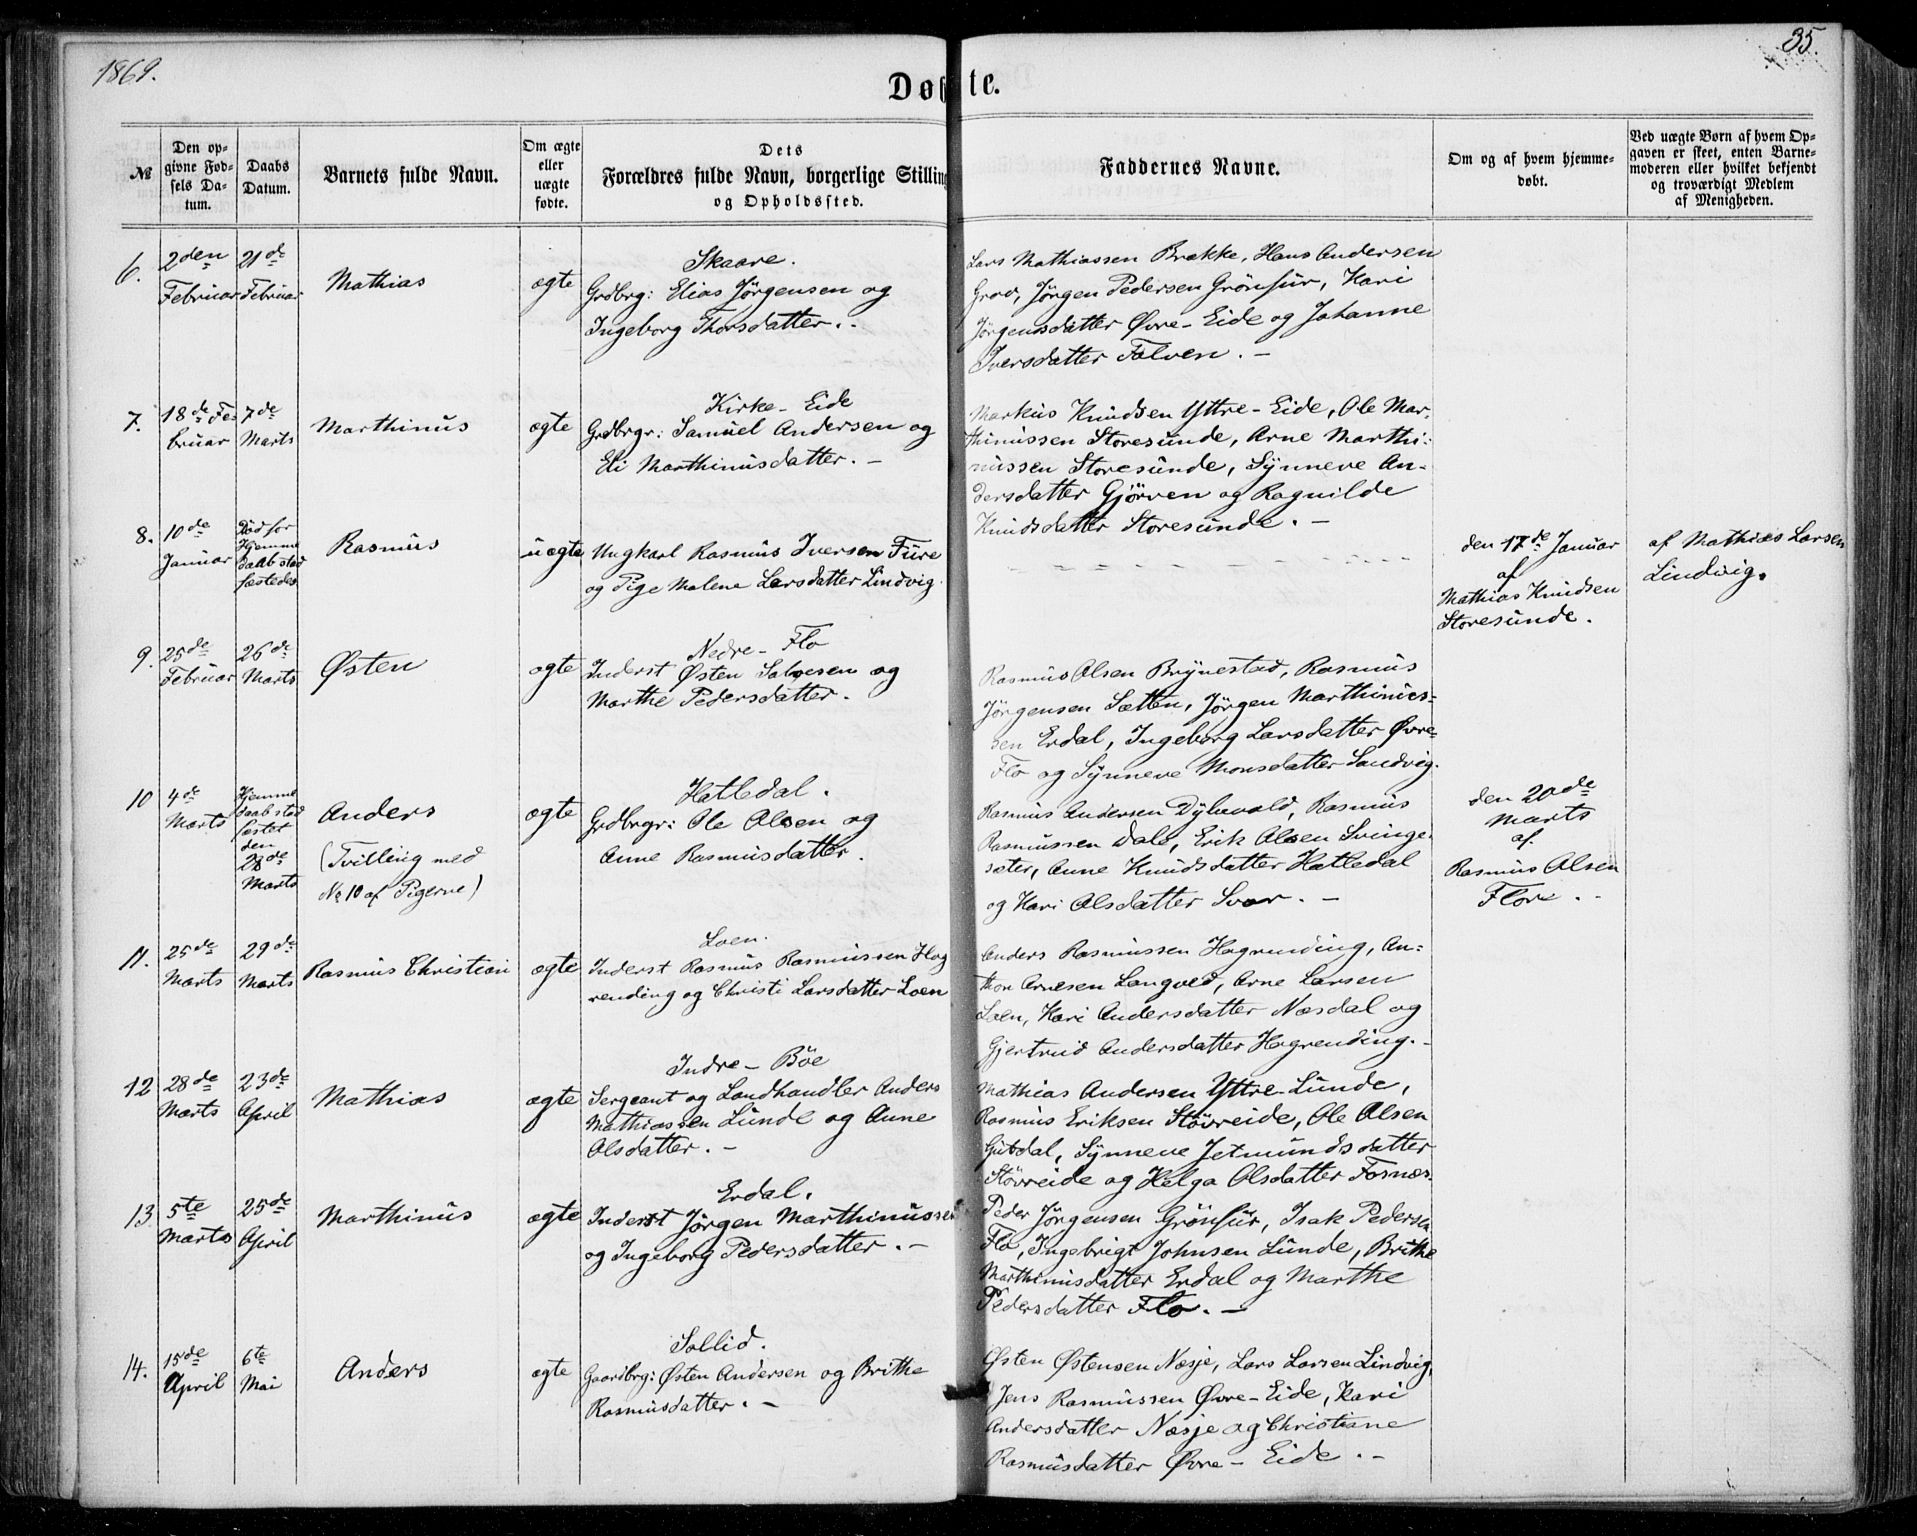 1869.
35.
Døbte.
№
Den opgivne Fødsels Datum.
Daabs Datum.
Barnets fulde Navn.
Om ægte eller uægte fødte.
Dets Forældres fulde Navn, borgerlige Stilling og Opholdssted.
Faddernes Navne.
Om og af hvem hjemmedøbt.
Ved uægte Børn af hvem Opgaven er skeet, enten Barnemoderen eller hvilket bekjendt og troværdigt Medlem af Menigheden.
6.
2den
Februar
21de
Februar
Mathias
ægte
Skaare.
Grdbrg: Elias Jørgensen og
Ingeborg Thorsdatter.-
Lars Mathiassen Brække, Hans Andersen
Grov, Jørgen Pedersen Grönfur, Kari
Jørgensdatter Øvre-Eide og Johanne
Iversdatter Folven. -
7.
18de Fe-
bruar
7de
Marts
Marthinus
ægte
Kirke-Eide
Grdbrgr: Samuel Andersen og
Eli Marthinusdatter. -
Markus Knudsen Yttre-Eide, Ole Mar-
thinussen Storesunde, Arne Marthi-
nussen Storesunde, Synneve An-
dersdatter Gjörven og Ragnilde
Knudsdatter Storesunde. -
8.
10de
Januar
Död før
Hjemme
daab stad
fæstedes
Rasmus
uægte
Ungkarl Rasmus Iversen Fure
og Pige Malene Larsdatter Lindvig.
den 17de Januar
af
Mathias Knudsen
Storesunde.
af Mathias Larsen
Lindvig.
9.
25de
Februar
26de
Marts
Østen
ægte
Nedre-Flo
Inderst Østen Salvesen og
Marthe Pedersdatter.
Rasmus Olsen Brynestad, Rasmus
Jørgensen Sætten, Jørgen Marthinus-
sen Erdal, Ingeborg Larsdatter Øvre-
Flo og Synneve Monsdatter Sandvig.
10
4de
Marts
Hjemme
daab stad
fæstet
den
28de
Marts
Anders
(Tvilling med
No 10 af Pigerne)
ægte
Hatledal.
Grdbrgr: Ole Olsen og
Anne Rasmusdatter.
Rasmus Andersen Dybevold, Rasmus
Rasmussen Dale, Erik Olsen Svinge-
sæter, Anne Knudsdatter Hatledal
og Kari Olsdatter Svor. -
den 20de
Marts
af.
Rasmus Olsen
Flore. -
11.
25de
Marts
29de
Marts
Rasmus Christian
ægte
Loen.
Inderst Rasmus Rasmussen Hog
rending og Christi Larsdatter Loen
Anders Rasmussen Hogrending, An-
thon Arnesen Langved, Arne Larsen
Loen, Kari Andersdatter Næsdal og
Gjertrud Andersdatter Hogrending. -
12
28de
Marts
23de
April
Mathias
ægte
Indre-Böe
Sergeant og Landhandler Anders
Mathiassen Lunde og Anne
Olsdatter. -
Mathias Andersen Yttre-Lunde,
Rasmus Eriksen Störreide, Ole Olsen
Gutdal, Synneve Jetmundsdatter
Störreide og Helga Olsdatter Fosnæs.
13
5te
Marts
25de
April
Marthinus
ægte
Erdal.
Inderst Jørgen Marthinussen
og Ingeborg Pedersdatter. -
Peder Jørgensen Grönfur, Isak Pedersen
Flo, Ingebrigt Johnsen Lunde, Brithe
Marthinusdatter Erdal og Marthe
Pedersdatter Flo. -
14.
15de
April
6te
Mai
Anders
ægte
Sollid.
Gaardbrg: Østen Andersen og Brithe
Rasmusdatter. -
Østen Østensen Næsje, Lars Larsen Lindvig,
Jens Rasmussen Øvre-Eide, Kari
Andersdatter Næsje og Christiane
Rasmusdatter Øvre-Eide. -